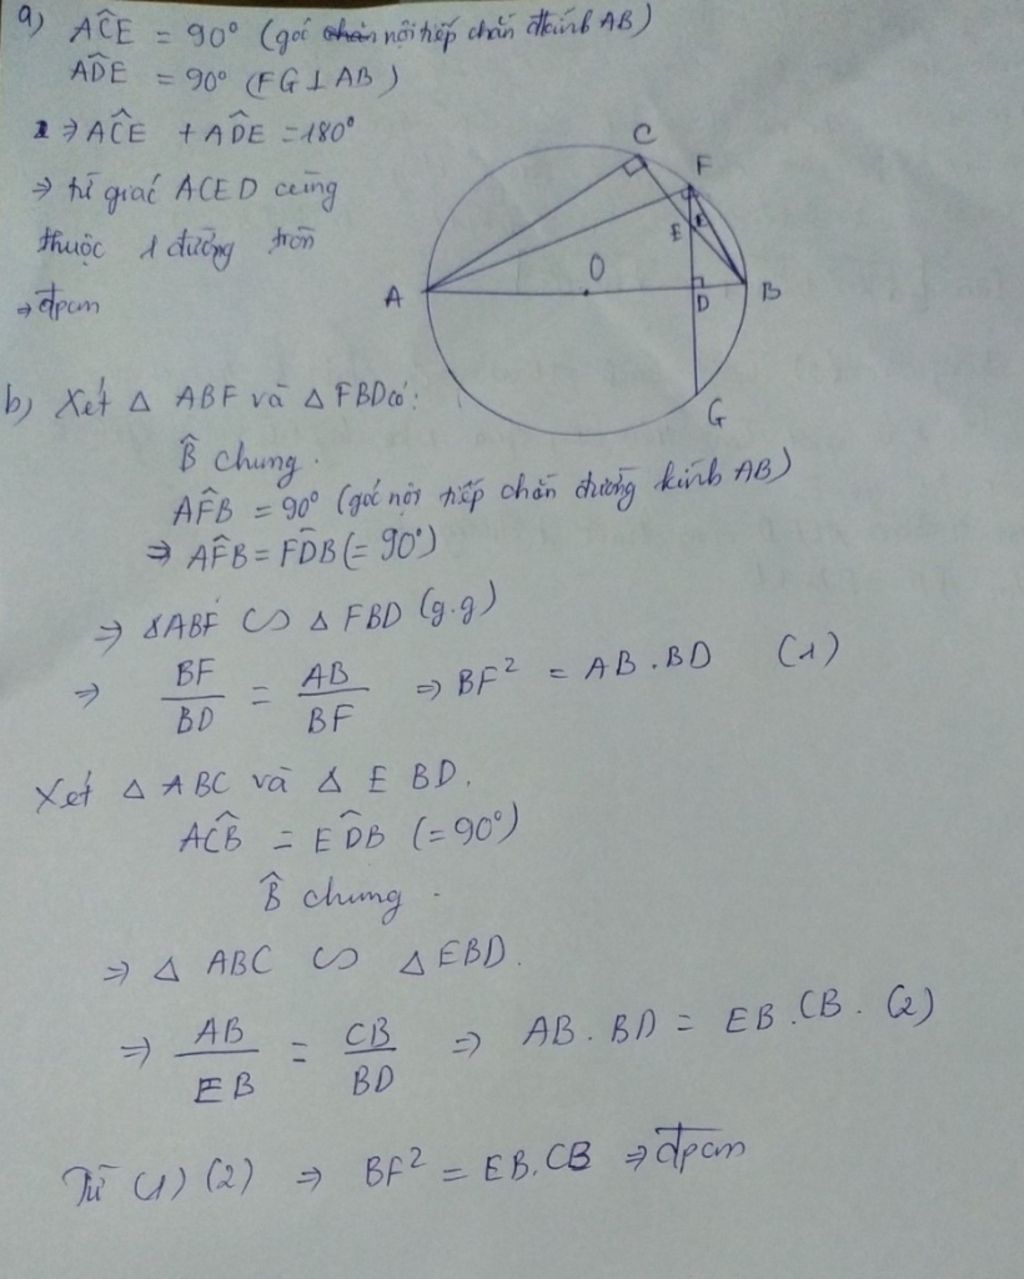 a) AĈE = 90° (góc nội tiếp chắn đkính AB)
AD̂E = 90° (FG ⊥ AB)
⇒ AĈE + AD̂E = 180°
⇒ tứ giác ACED cùng
thuộc 1 đường tròn
⇒ đpcm
C
F
E
O
A
D
B
G
b) Xét △ ABF và △ FBD có:
B̂ chung.
AF̂B = 90° (góc nội tiếp chắn đường kính AB)
⇒ AF̂B = FD̂B (= 90°)
⇒ △ABF ∽ △ FBD (g.g)
⇒ BF/BD = AB/BF ⇒ BF² = AB . BD (1)
Xét △ ABC và △ EBD.
AĈB = ED̂B (= 90°)
B̂ chung.
⇒ △ ABC ∽ △ EBD.
⇒ AB/EB = CB/BD ⇒ AB . BD = EB . CB. (2)
Từ (1) (2) ⇒ BF² = EB. CB ⇒ đpcm